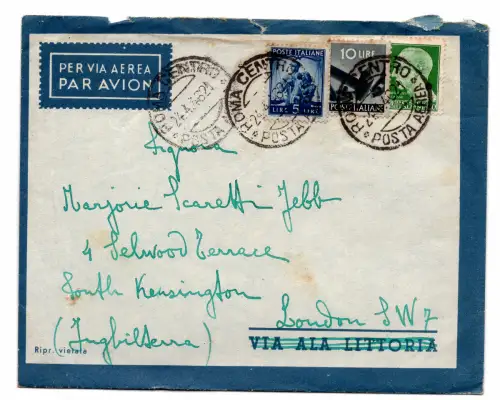 PER VIA AEREA
PAR AVION
POSTE ITALIANE
LIRE 5 LIRE
10 LIRE
POSTE ITALIANE
ROMA CENTRO
POSTA
ROMA CENTRO
POSTA
CENTRO
POSTA AEREA
Signora
Marjorie Scaretti Jebb
4 Selwood Terrace
South Kensington
(Inghilterra)
London SW7
VIA ALA LITTORIA
Ripr. vietata